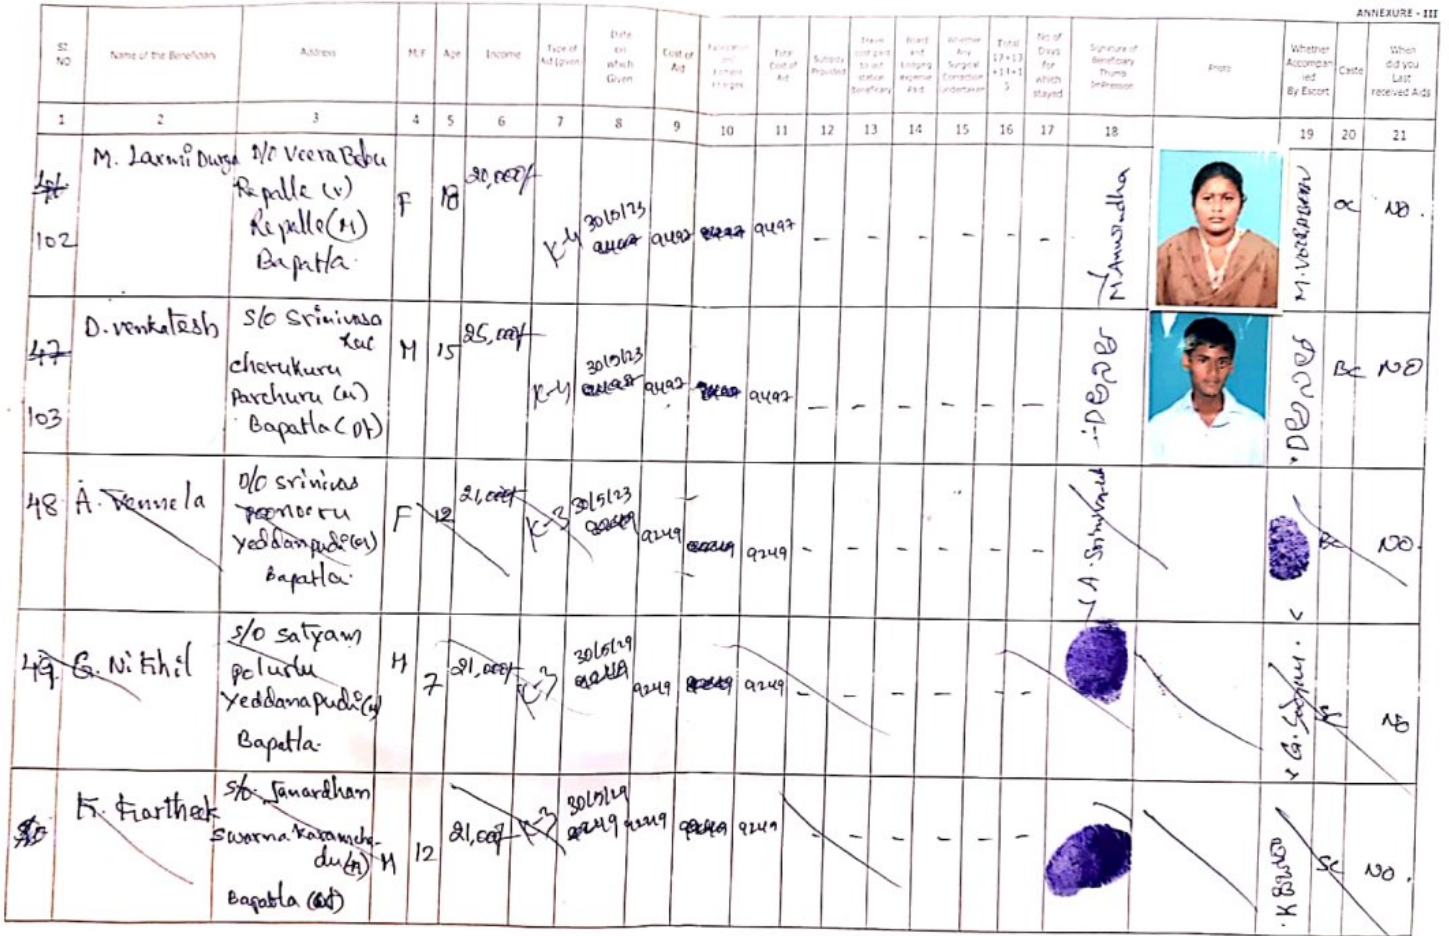 ANNEXURE - III
Sl. NO
Name of the Beneficiary
Address
M/F
Age
Income
Type of Aid (given)
Date on which Given
Cost of Aid
Total Cost of Aid
Subsidy Provided
Travel cost paid to out station Beneficiary
Board and Lodging expense Paid
Whether Any Surgical Correction undertaken
No of Days for which stayed
Signature of Beneficiary Thumb Impression
Photo
Whether Accompanied By Escort
Caste
When did you Last received Aids
1 2 3 4 5 6 7 8 9 10 11 12 13 14 15 16 17 18 19 20 21
102
M. Laxmi Durga
D/O Veera Babu
Repalle (v)
Repalle (M)
Bapatla.
F 18 20,000/-
K-4 30/5/23 9497 9497 - - - - - -
M. Anuradha
OC NO.
47
103
D. Venkatesh
S/O Srinivasa
Rao
cherukuru
Parchuru (M)
Bapatla (Dt)
M 15 25,000/-
K-4 30/5/23 9497 9497 - - - - - -
BC NO
48
A. Vennela
D/O Srinivas
Yeddanpudi (M)
Bapatla.
F 12 21,000/-
K-3 30/5/23 9249 9249 - - - - - -
A. Srinivasarao
NO.
49
G. Nikhil
S/O Satyam
Polurlu
Yeddanapudi (M)
Bapatla.
M 7 21,000/-
K-3 9249 9249 - - - - - -
NO
K. Kartheek
S/O Janardhan
Swarna Karamche-
du (M)
Bapatla (Dt)
M 12 21,000/-
K-3 9249 9249 - - - - - -
SC NO.